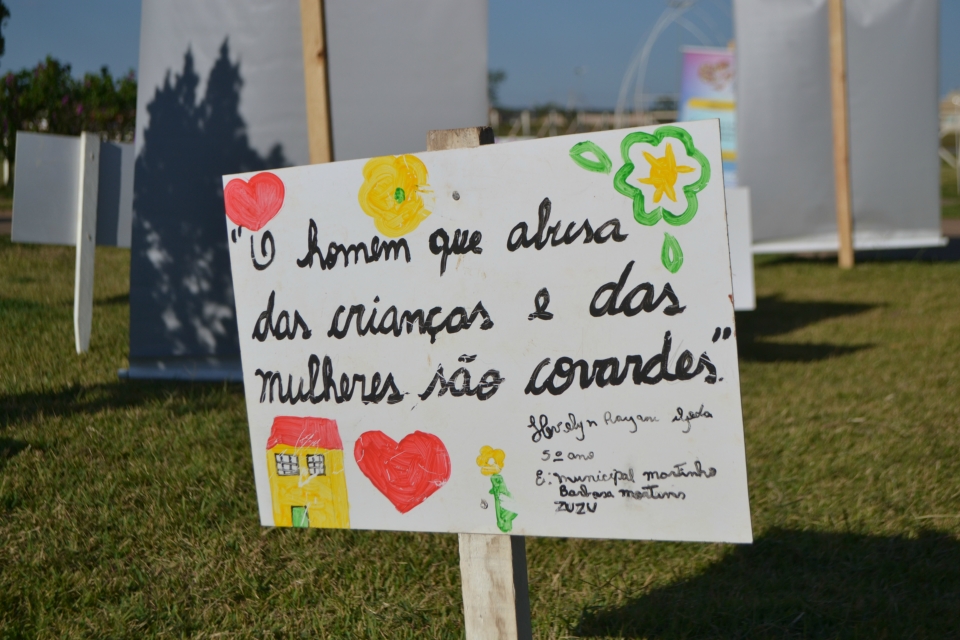 "O homem que abusa
das crianças e das
mulheres são covardes".
5º ano
E: municipal martinho
Barbosa martins
ZUZU